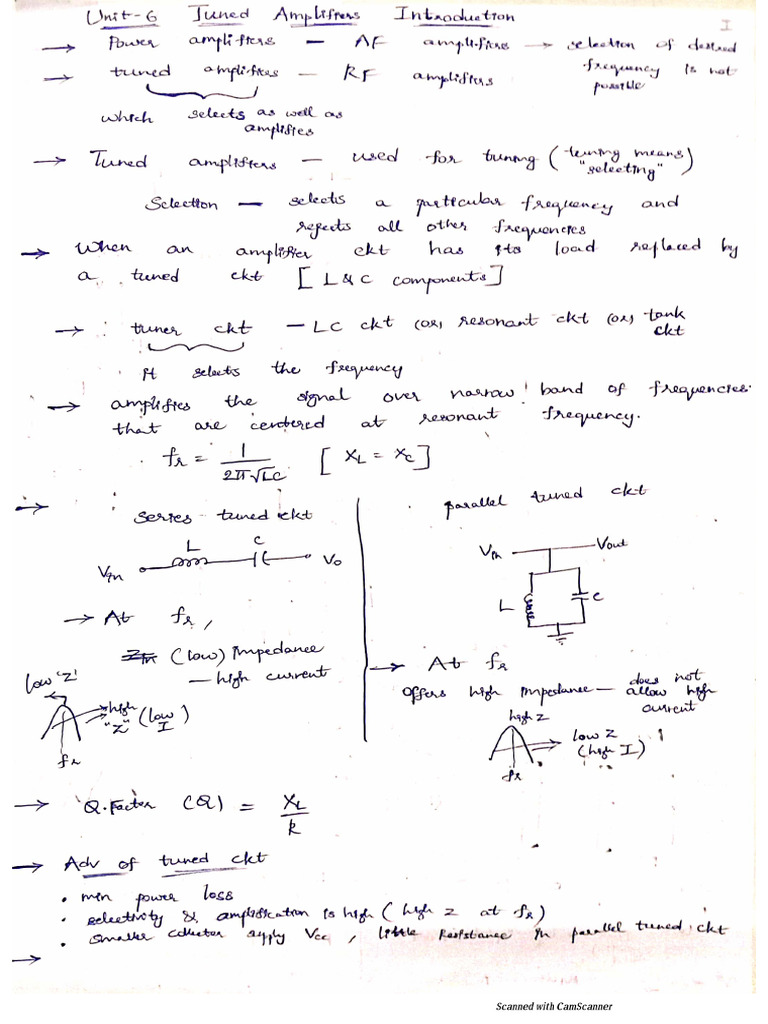 Unit-6 Tuned Amplifiers Introduction
I
→ Power amplifiers — AF amplifiers → selection of desired frequency is not possible
→ tuned amplifiers — RF amplifiers
which selects as well as
amplifies
→ Tuned amplifiers — used for tuning (tuning means "selecting")
Selection — selects a particular frequency and
rejects all other frequencies
→ When an amplifier ckt has its load replaced by
a tuned ckt [L & C components]
→ tuner ckt — LC ckt (or) resonant ckt (or) tank
ckt
It selects the frequency
→ amplifies the signal over narrow band of frequencies
that are centered at resonant frequency.
fr = 1/2π√LC [XL = XC]
→ series tuned ckt
L C
Vin Vo
→ At fr,
(low) impedance
— high current
low 'Z'
high
"Z" (low I)
fr
parallel tuned ckt
Vin Vout
L C
→ At fr
offers high impedance — does not
allow high
current
high Z
low Z
(high I)
fr
→ Q.Factor (Q) = XL/R
→ Adv of tuned ckt
• min power loss
• selectivity & amplification is high (high Z at fr)
• smaller collector supply Vcc, little Resistance in parallel tuned ckt
→
Scanned with CamScanner